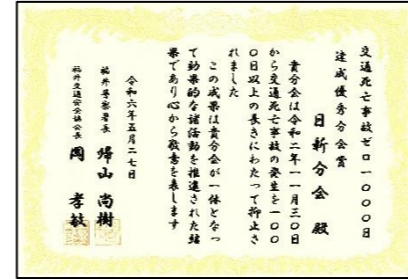 交通死亡事故ゼロ一〇〇〇日
達成優秀分会賞
日新分会 殿
貴分会は令和二年一一月三〇日
から交通死亡事故の発生を一〇〇
〇日以上の長きにわたって抑止さ
れました
この成果は貴分会が一体となっ
て効果的な諸活動を推進された結
果であり心から敬意を表します
令和六年五月二七日
福井警察署長 帰山 尚樹
福井交通安全協会長 岡 孝敏